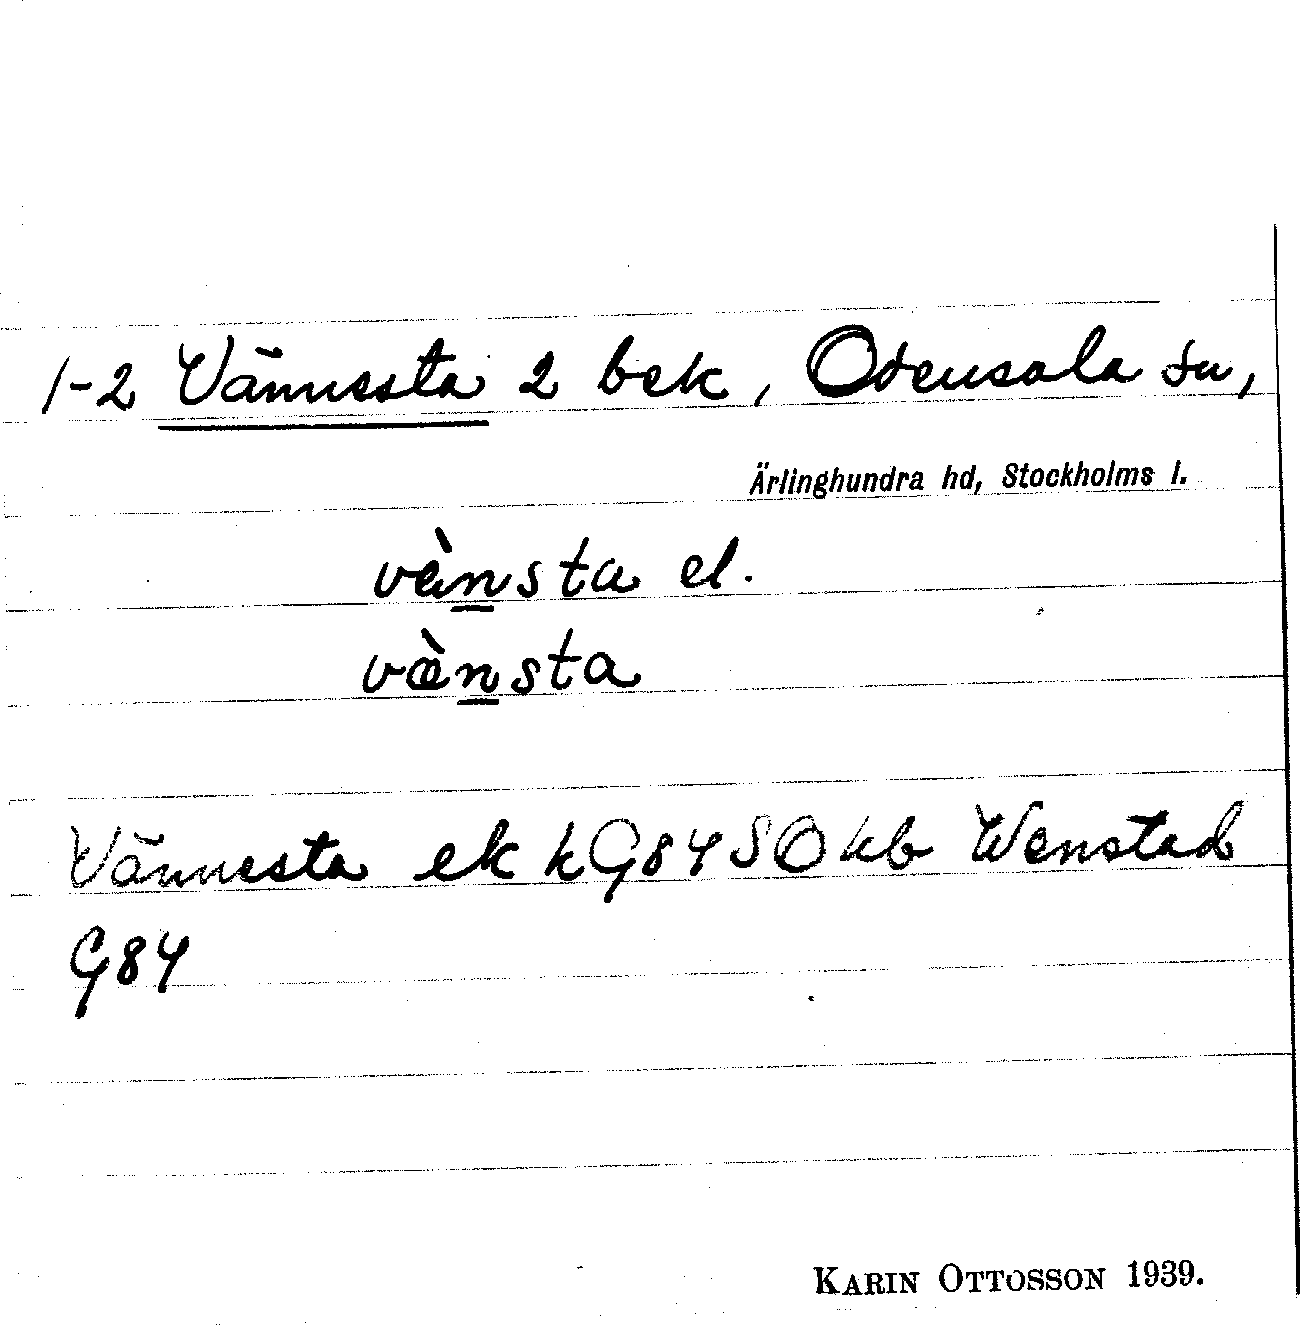 1-2 Vännesta 2 bek, Odensala sn,
Ärlinghundra hd, Stockholms l.
vènsta el.
væ̀nsta
Vännesta ek kG84 SO kb Wenstad
G84
KARIN OTTOSSON 1939.